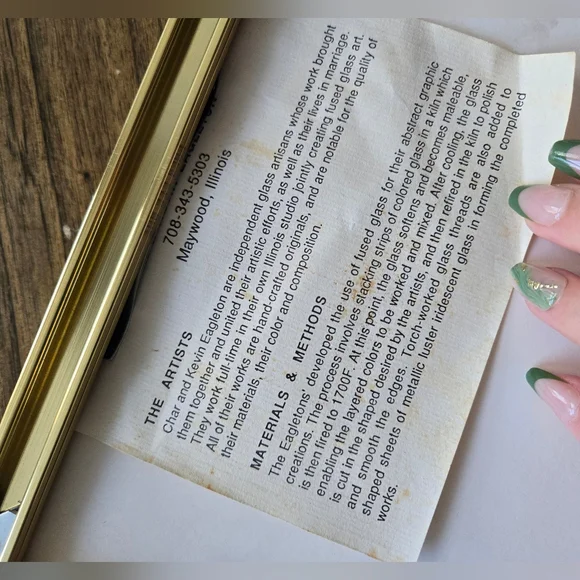 708-343-5303
Maywood, Illinois
THE ARTISTS
Char and Kevin Eagleton are independent glass artisans whose work brought
them together and united their artistic efforts, as well as their lives in marriage.
They work full-time in their own Illinois studio jointly creating fused glass art.
All of their works are hand-crafted originals, and are notable for the quality of
their materials, their color and composition.
MATERIALS & METHODS
The Eagletons' developed the use of fused glass for their abstract graphic
creations. The process involves stacking strips of colored glass in a kiln which
is then fired to 1700F. At this point, the glass softens and becomes maleable,
enabling the layered colors to be worked and mixed. After cooling, the glass
is cut in the shaped desired by the artists, and then refired in the kiln to polish
and smooth the edges. Torch-worked glass threads are also added to
shaped sheets of metallic luster iridescent glass in forming the completed
works.